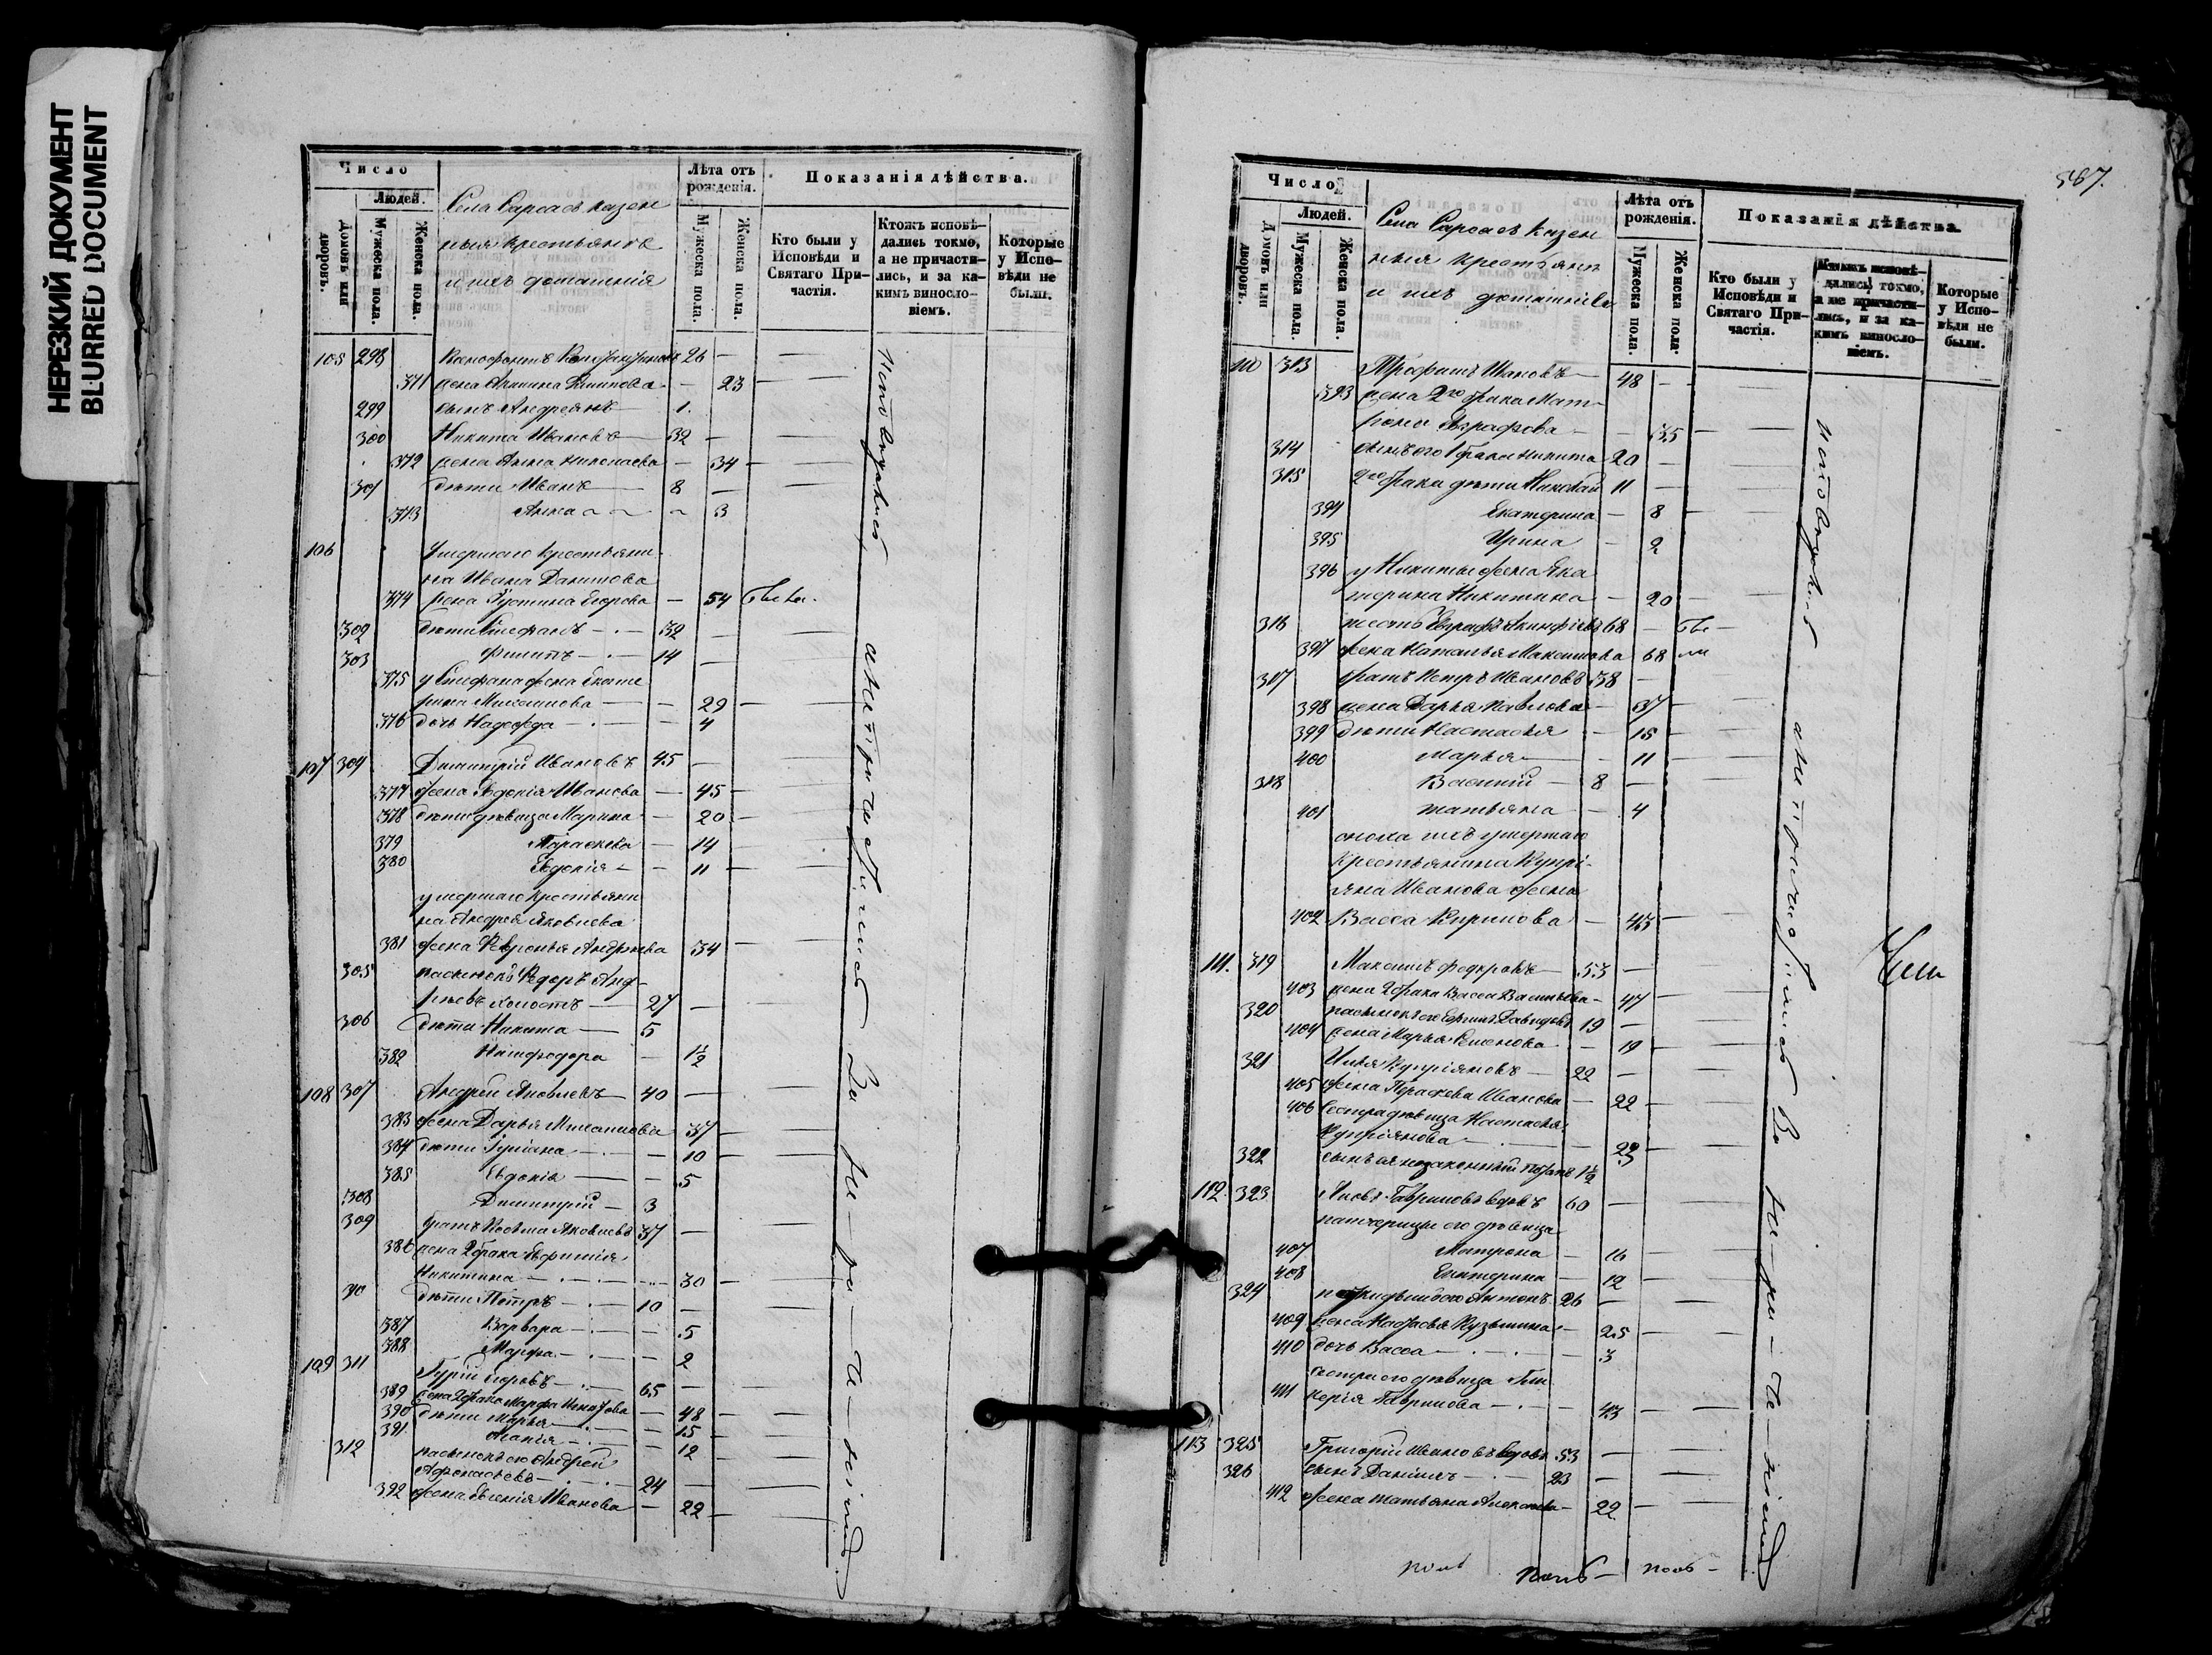 НЕРЕЗКИЙ ДОКУМЕНТ
BLURRED DOCUMENT
Число
Людей.
Домовъ или дворовъ.
Мужеска пола.
Женска пола.
Села Сарсасъ казен
ныя крестьяне
и ихъ домашнія
Лѣта отъ рожденія.
Мужеска пола.
Женска пола.
Показанія дѣйства.
Кто были у Исповѣди и Святаго Причастія.
Ктожъ исповѣдались токмо, а не причастились, и за какимъ винословіемъ.
Которые у Исповѣди не были.
105 298 26
371 жена 23
299 сынъ Андреянъ 1.
300 Никита Ивановъ 32
372 жена Анна Николаева 34
301 дѣти Иванъ 8
373 Анна 3
106 Умершаго крестьяни
на Ивана Данилова
374 жена Устина Егорова 54 была.
302 дѣти Стефанъ 32
303 Филипъ 14
375 у Стефана жена Екате
рина 29
376 дочь Надежда 4
107 304 Димитрій Ивановъ 45
377 жена Евдокія Иванова 45
378 дѣти дѣвица Марина 20
379 Параскева 14
380 Евдокія 11
умершаго крестьяни
на Андрея Яковлева
381 жена Февронья Андреева 34
305 пасынокъ Федоръ Анд-
реевъ холостъ 27
306 дѣти Никита 5
382 1½
108 307 Андрей Яковлевъ 40
383 жена Дарья Михайлова 37
384 дѣти 10
385 Евдокія 5
308 Димитрій 3
309 братъ Козьма Яковлевъ 37
386 жена 2 брака Евфимія
Никитина 30
310 дѣти Петръ 10
387 Варвара 5
388 Марфа 2
109 311 Гурій Егоровъ 65
389 жена 2 брака Марфа 48
390 дѣти Марья 15
391 12
312 пасынокъ его Андрей
Афонасьевъ 24
392 жена Евгенія Иванова 22
исповѣдались а не причастились За не-ра-че-ніемъ
567.
Число
Людей.
Домовъ или дворовъ.
Мужеска пола.
Женска пола.
Села Сарсасъ казен
ныя крестьяне
и ихъ домашнія
Лѣта отъ рожденія.
Мужеска пола.
Женска пола.
Показанія дѣйства.
Кто были у Исповѣди и Святаго Причастія.
Ктожъ исповѣдались токмо, а не причастились, и за какимъ винословіемъ.
Которые у Исповѣди не были.
110 313 Трофимъ Ивановъ 48
393 жена 2го брака Мат-
рона Евграфова 35
314 сынъ его 1 брака Никита 20
315 2го брака дѣти Николай 11
394 Екатерина 8
395 Ирина 2
396 у Никиты жена Ека
терина Никитина 20
316 тесть Евграфъ 68 бы
397 жена Наталья Максимова 68 ли
317 братъ Петръ Ивановъ 38
398 жена Дарья Павлова 37
399 дѣти Настасья 15
400 Марья 11
318 Василій 8
401 Татьяна 4
сноха ихъ умершаго
крестьянина Купрі-
яна Иванова жена
402 Васса Кирилова 43
111. 319 Максимъ Федоровъ 53
403 жена 2 брака Васса Васильева 47
320 пасынокъ его Давидовъ 19
404 жена Марья Семенова 19
321 Илья Купріяновъ 22
405 жена Параскева Иванова 22
406 сестра дѣвица Настасья
Купріянова 23
322 сынъ ея незаконный 1½
112. 323 Яковъ Гавриловъ вдовъ 60
падчерицы его дѣвица
407 Матрона 16
408 Екатерина 12
324 Антонъ 26
409 жена Настасья Кузьмина 25
410 дочь Васса 3
сестра его дѣвица Гли
411 керія Гаврилова 43
113 325 Григорій Ивановъ вдовъ 53
326 сынъ Даніилъ 23
412 жена Татьяна 22
исповѣдались а не причастились За не-ра-че-ніемъ